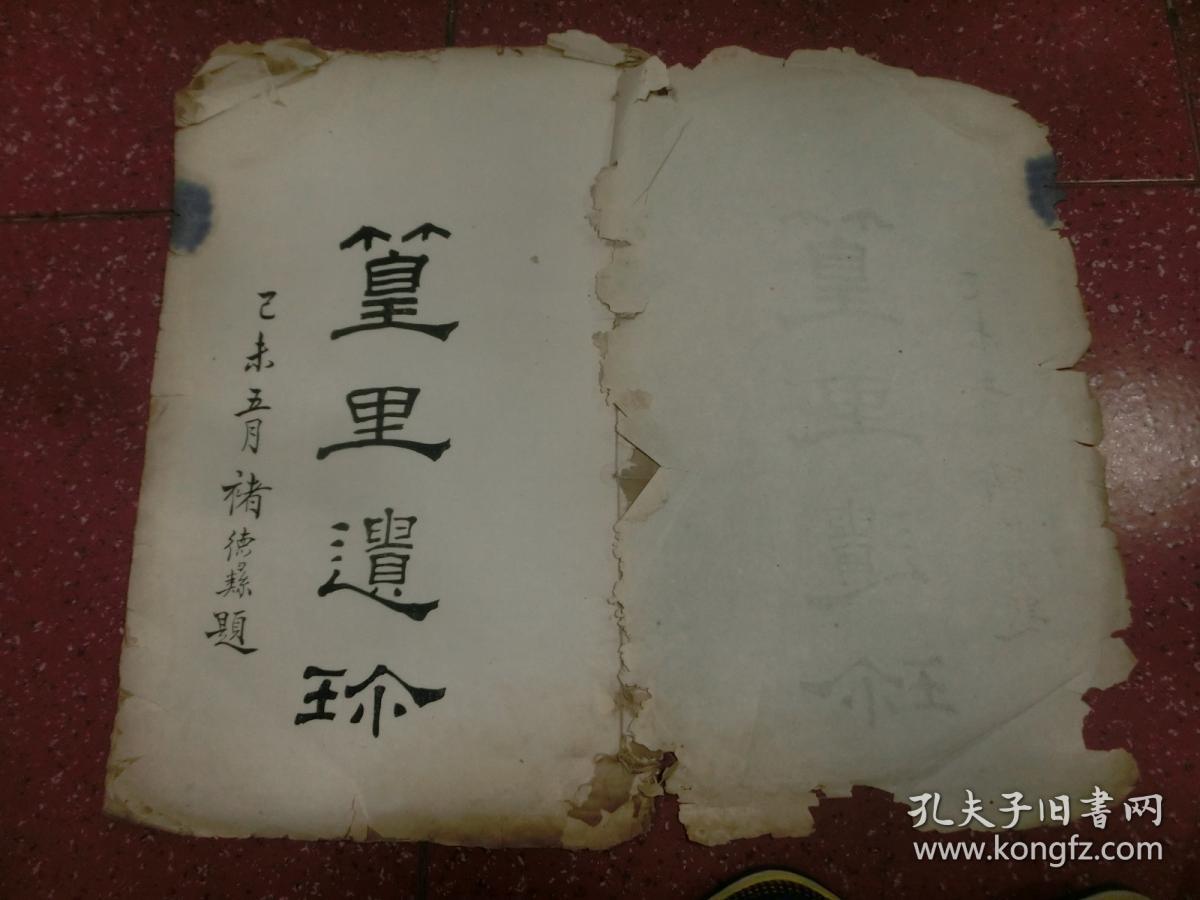 篁里遺珎
己未五月褚德彝題
孔夫子旧書网
www.kongfz.com